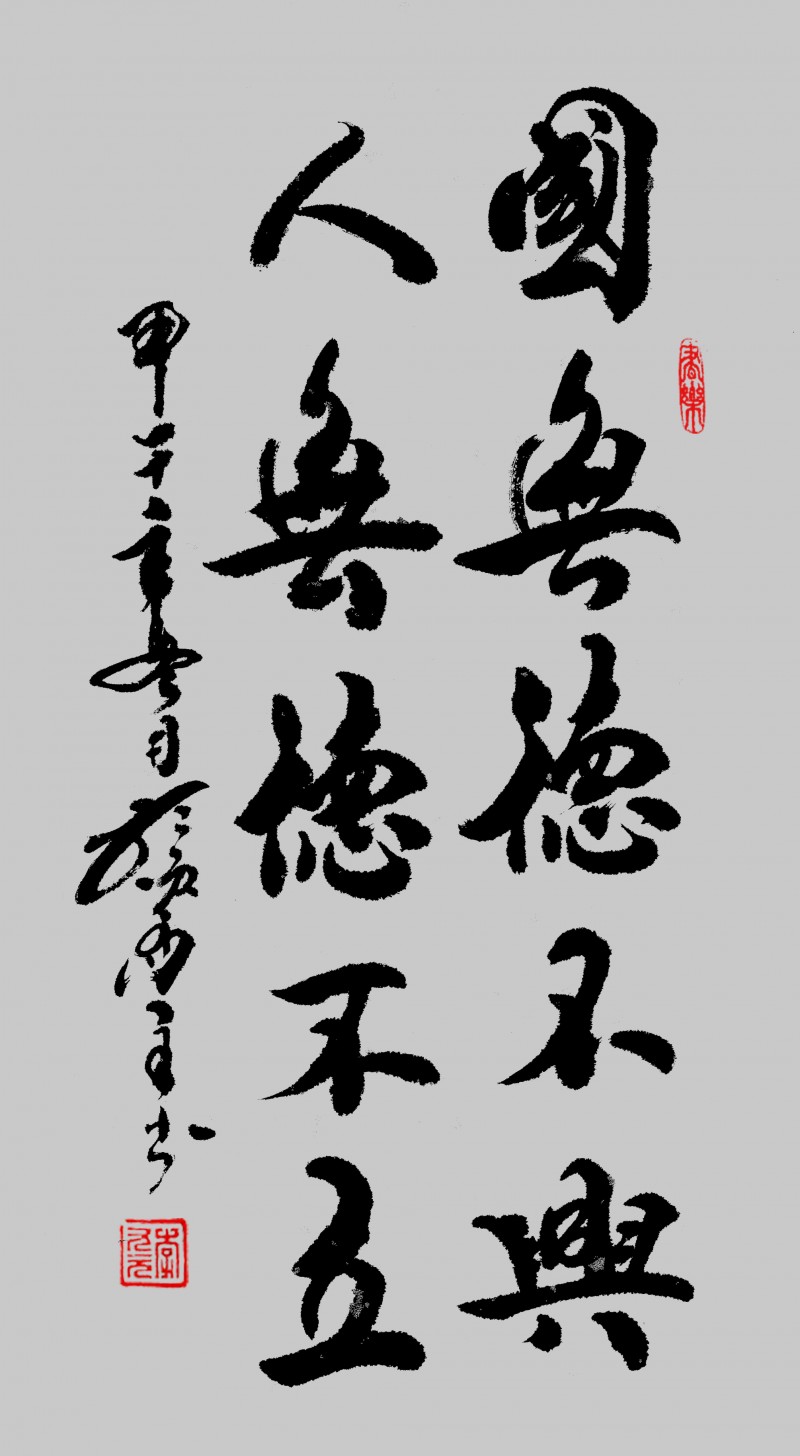 國無德不興
人無德不立
甲午年春月於
主書